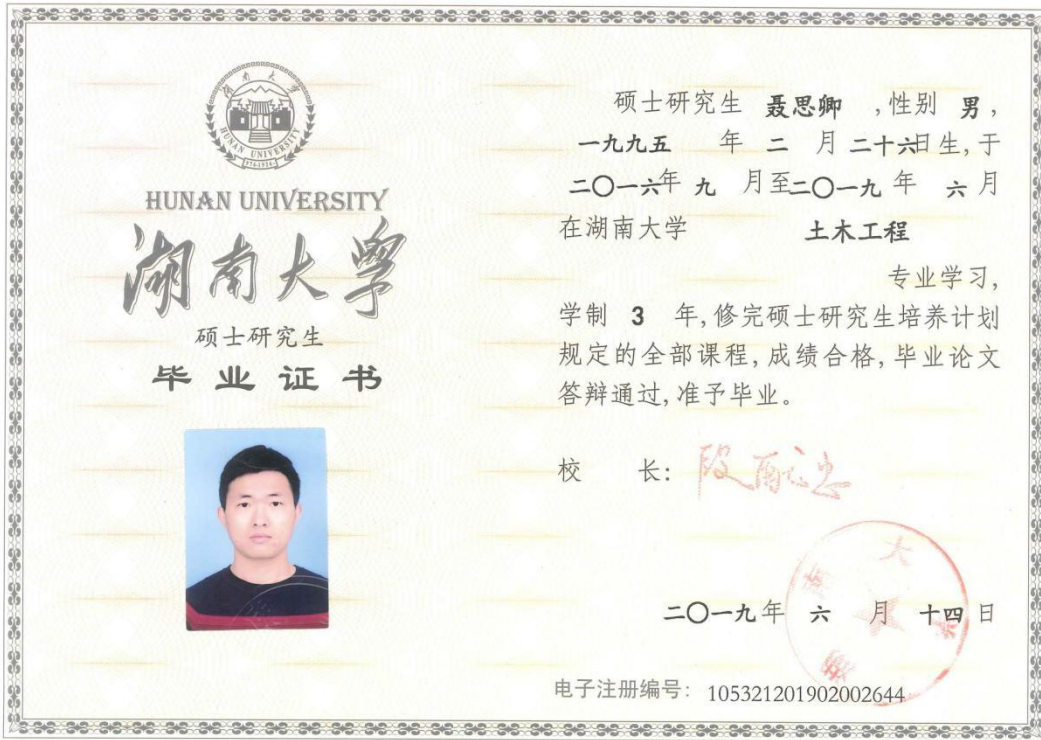 湖南大学
HUNAN UNIVERSITY
1976-1926
HUNAN UNIVERSITY
湖南大学
硕士研究生
毕业证书
硕士研究生 聂思卿 ,性别 男,
一九九五 年 二 月 二十六日生,于
二〇一六年 九 月至二〇一九 年 六 月
在湖南大学 土木工程
专业学习,
学制 3 年,修完硕士研究生培养计划
规定的全部课程,成绩合格,毕业论文
答辩通过,准予毕业。
校 长: 段献忠
二〇一九年 六 月 十四 日
湖南大学
电子注册编号: 105321201902002644